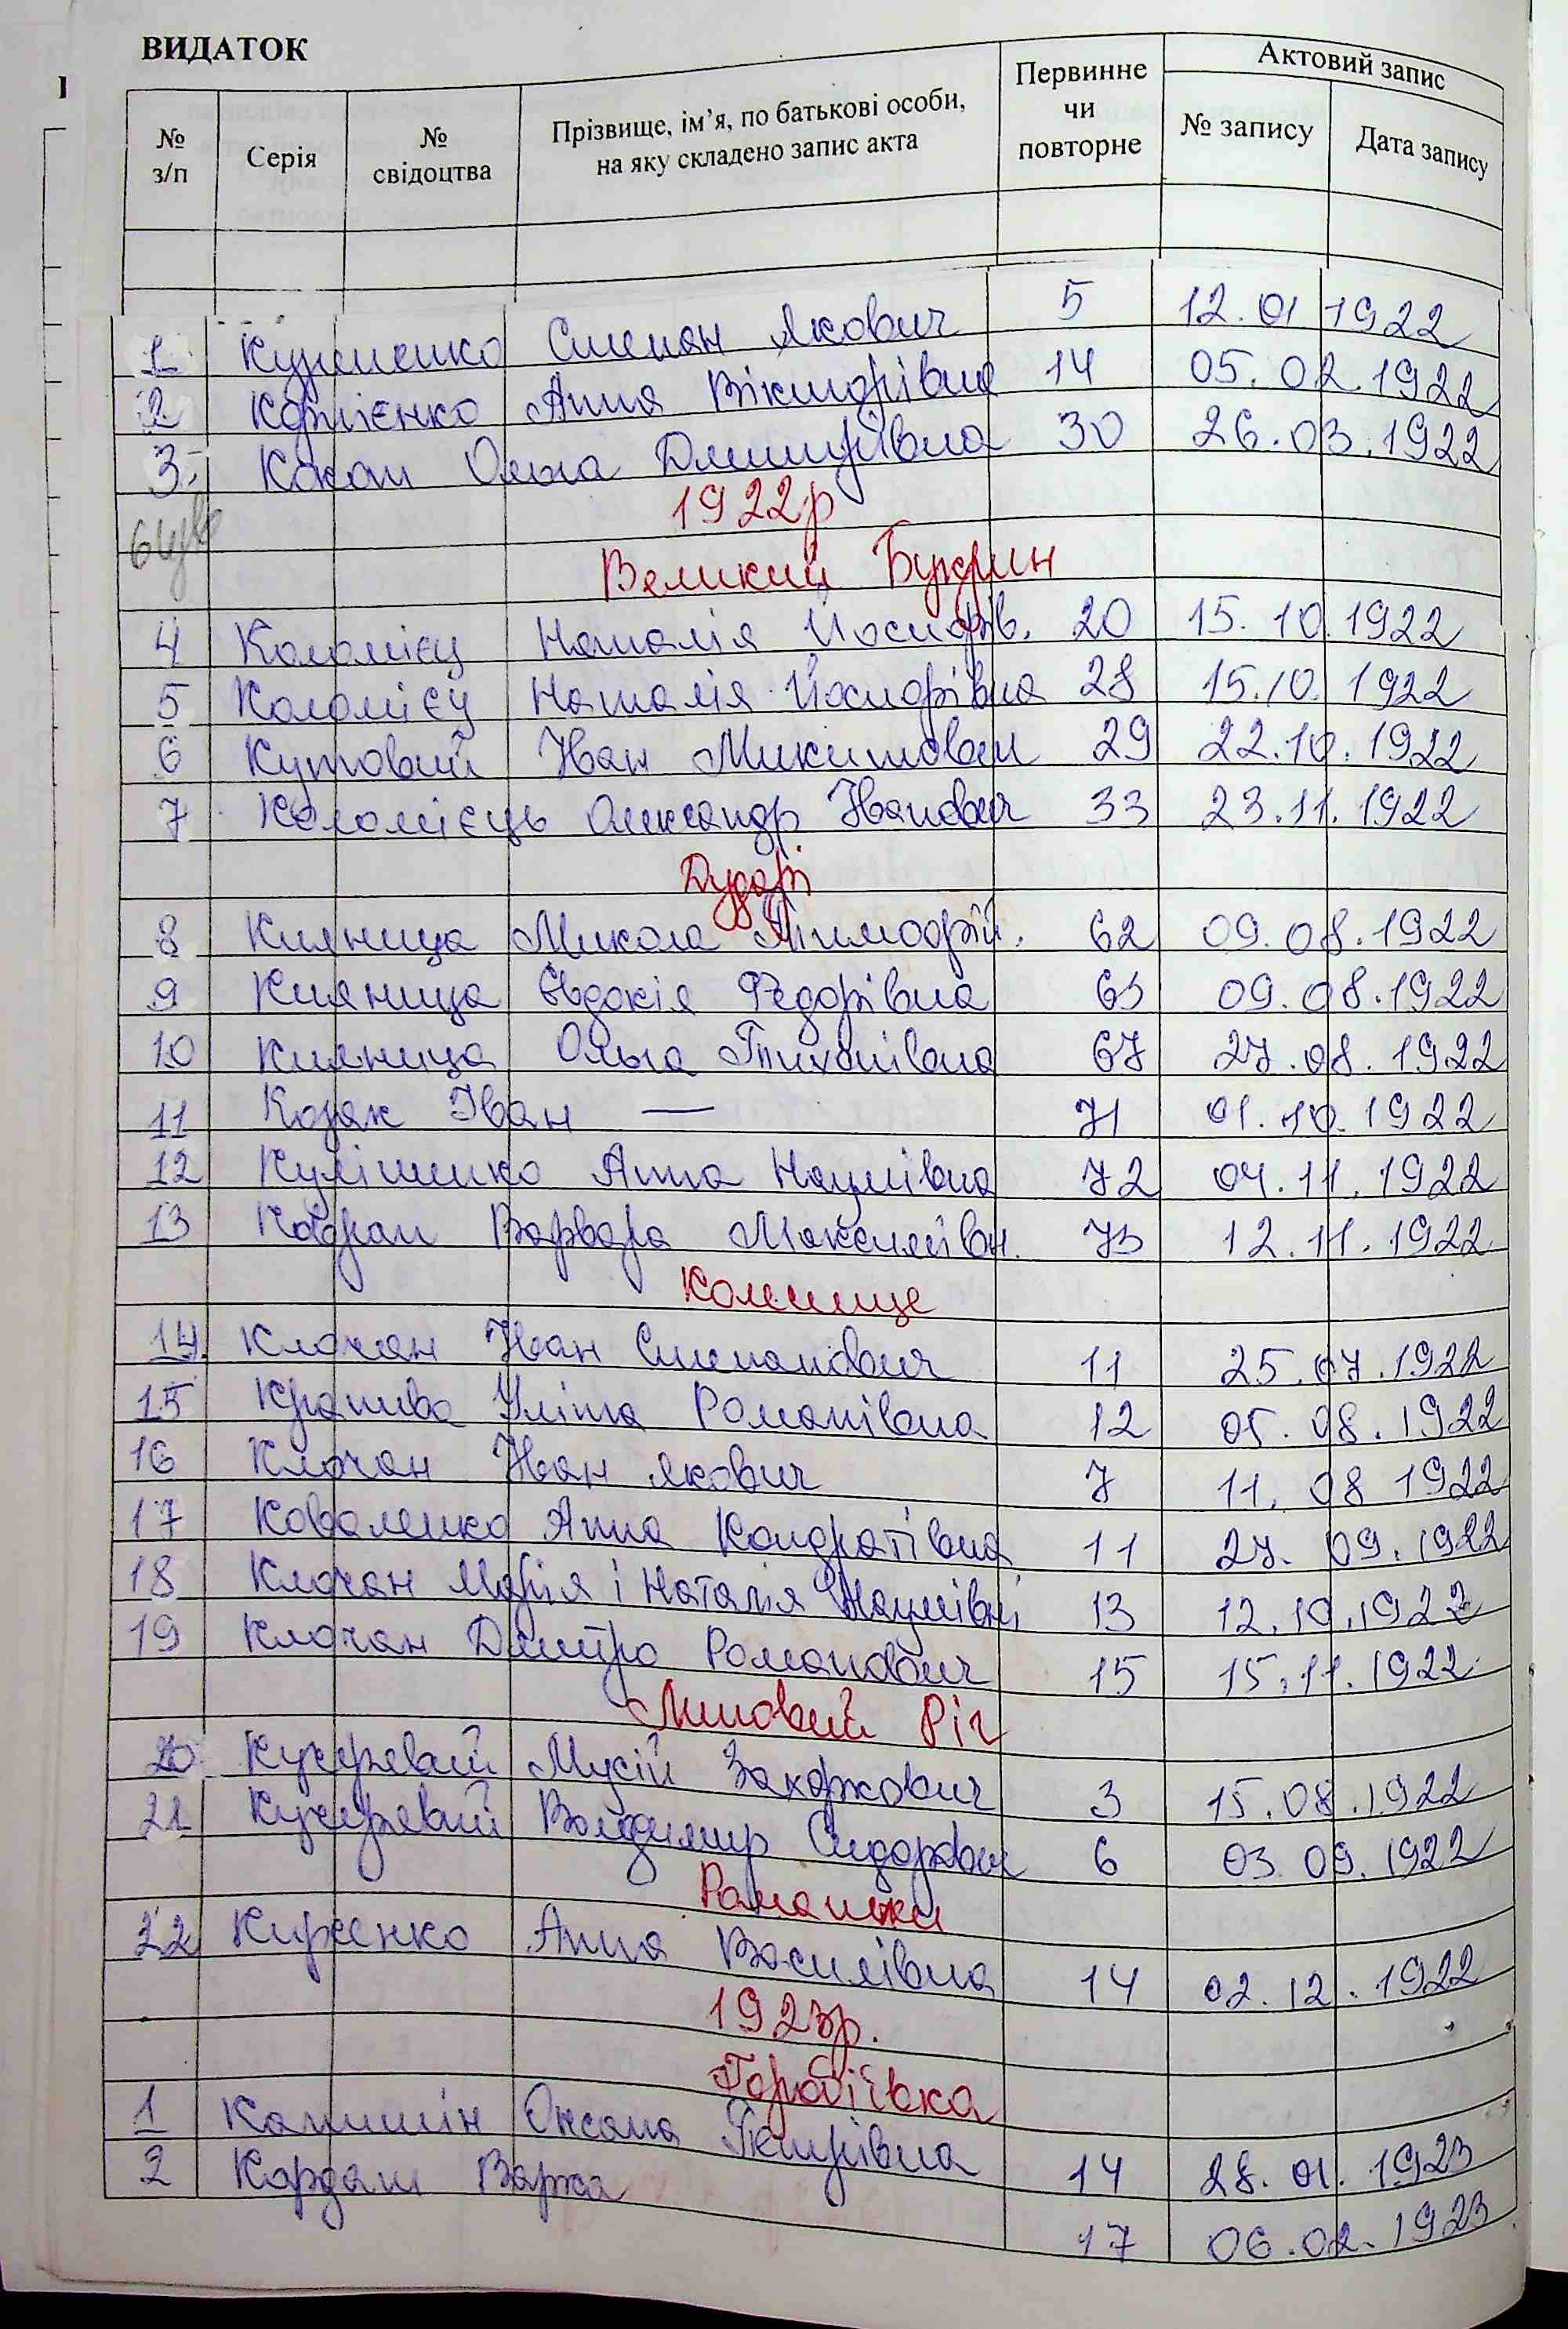 ВИДАТОК
№ з/п Серія № свідоцтва Прізвище, ім'я, по батькові особи, на яку складено запис акта Первинне чи повторне Актовий запис № запису Дата запису
1 Кузьменко Степан Якович 5 12.01 1922
2 Корнієнко Анна Вікторівна 14 05.02.1922
3 Кокот Ольга Дмитрівна 30 26.03.1922
1922р
Великий Букрин
4 Коломієц Наталія Йосипів. 20 15.10.1922
5 Коломієц Наталія Йосипівна 28 15.10.1922
6 Кутовий Іван Микитович 29 22.10.1922
7 Коломієць Олександр Іванович 33 23.11.1922
Дударі
8 Кияница Микола Тимофій. 62 09.08.1922
9 Кияница Євдокія Федорівна 63 09.08.1922
10 Кияница Ольга Тихонівна 67 27.08.1922
11 Козяк Іван — 71 01.10.1922
12 Кулішенко Анна Наумівна 72 04.11.1922
13 Варвара 73 12.11.1922
14. Клочан Іван Степанович 11 25.07.1922
15 Кропива Уліта Романівна 12 05.08.1922
16 Клочан Іван Якович 7 11.08 1922
17 Коваленко Анна Кондратівна 11 27.09.1922
18 Клочан Марія і Наталія Наумівні 13 12.10.1922
19 Клочан Дмитро Романович 15 15.11.1922
Липовий Ріг
20 Кучерявий Мусій Захарович 3 15.08.1922
21 Кучерявий Володимир Сидорович 6 03.09.1922
Ромашки
22 Анна Василівна 14 02.12.1922
1923р.
1 Оксана Петрівна 14 28.01.1923
2 Кардаш 17 06.02.1923